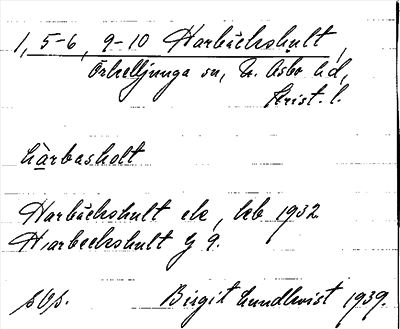 1, 5-6, 9-10 Harbäckshult,
Örkelljunga sn, N. Åsbo hd,
Krist. l.
hàrbasholt
Harbäckshult ek, kb 1932
Harbeckshult GG.
Birgit Lundkvist 1939.